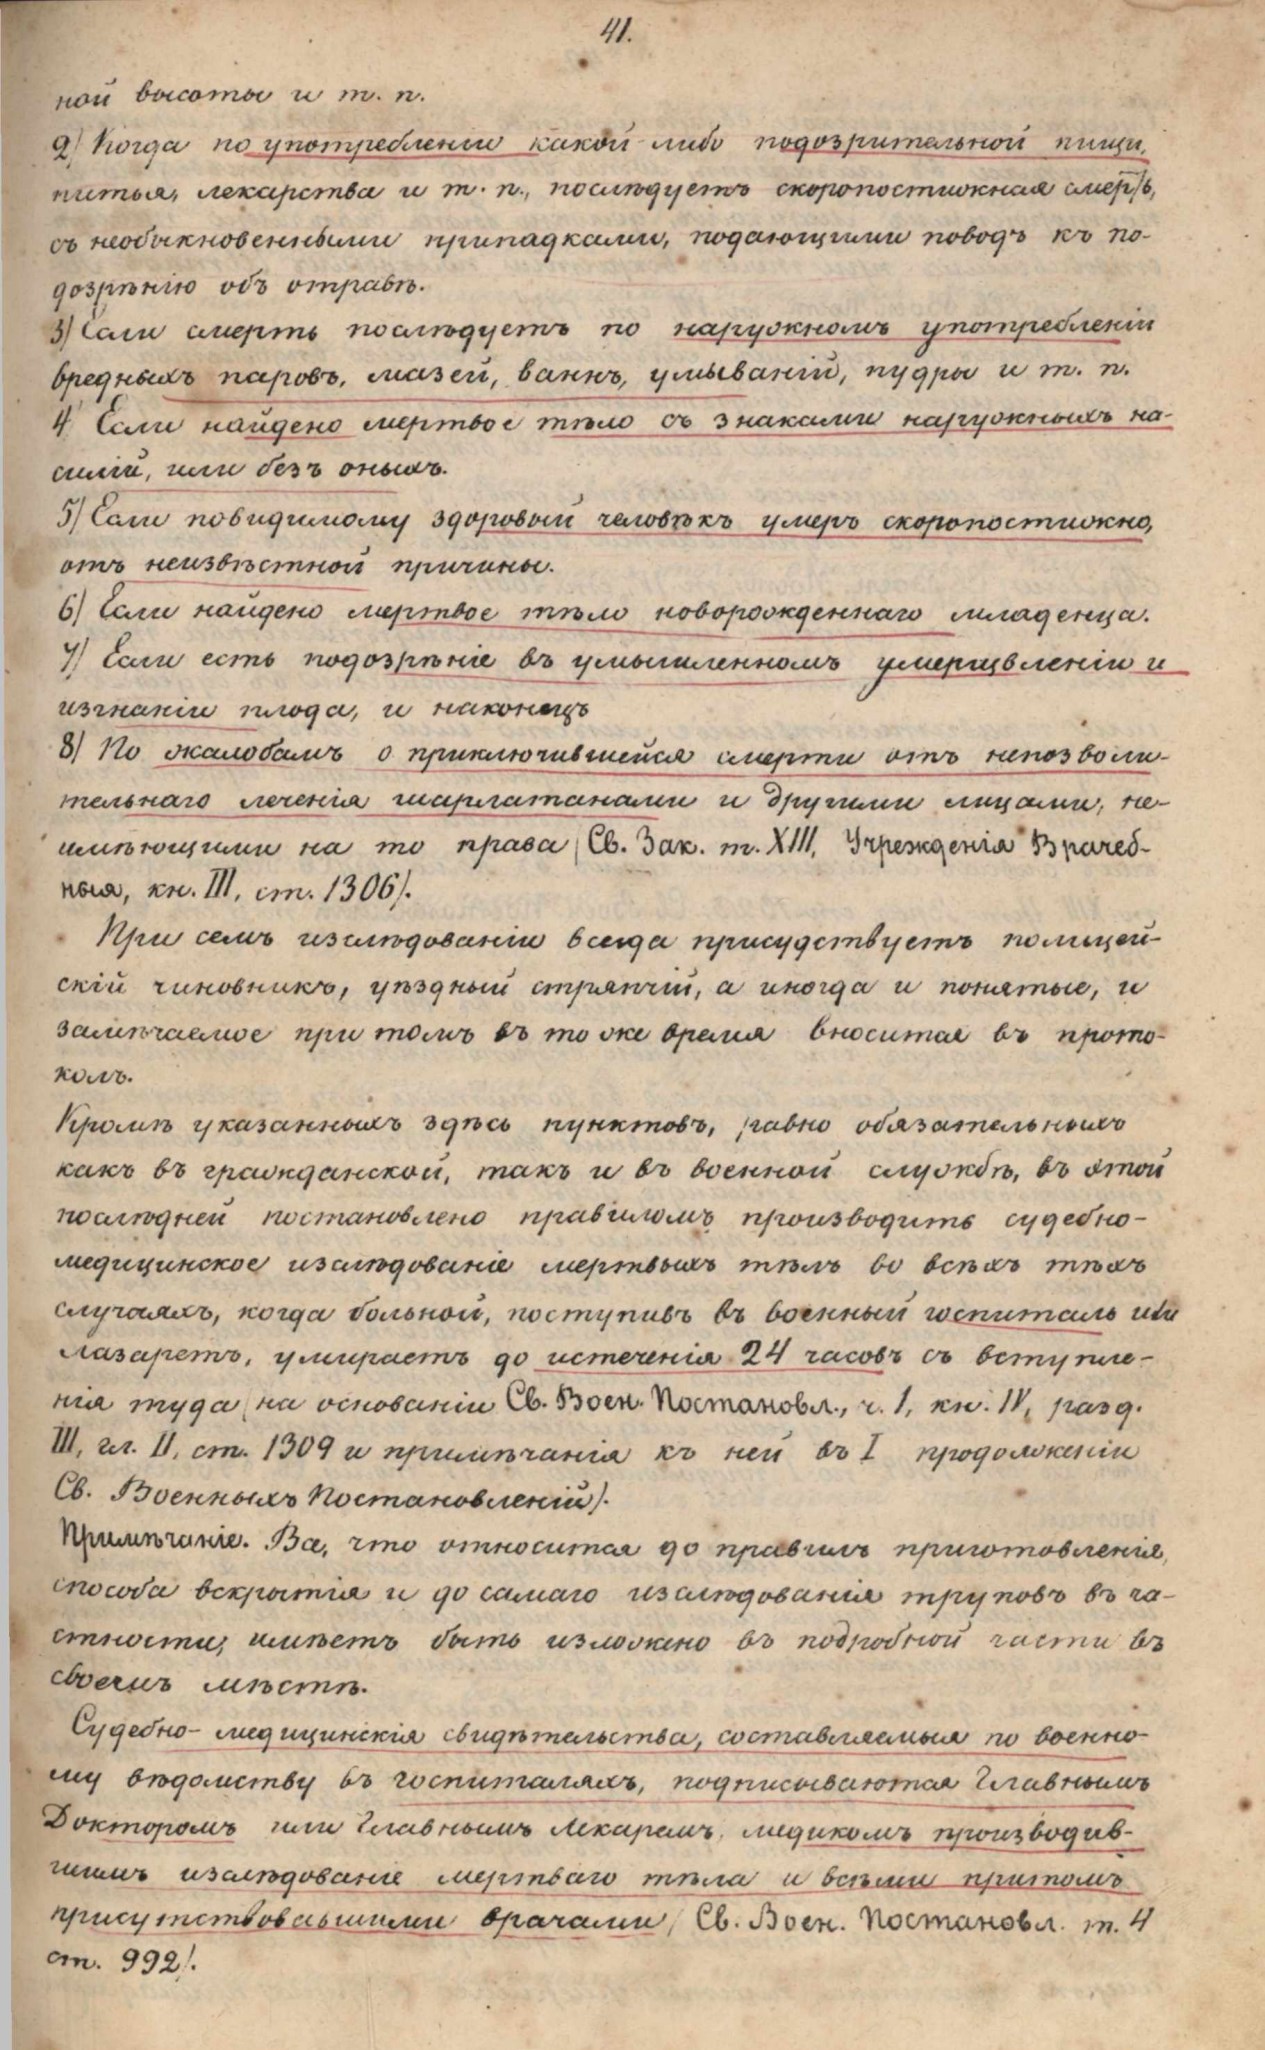 41.
ной высоты и т. п.
2) Когда по употребленіи какой-либо подозрительной пищи,
питья, лекарства и т. п., послѣдуетъ скоропостижная смерть,
съ необыкновенными припадками, подающими поводъ къ по-
дозрѣнію объ отравѣ.
3) Если смерть послѣдуетъ по наружномъ употребленіи
вредныхъ паровъ, мазей, ваннъ, умываній, пудры и т. п.
4) Если найдено мертвое тѣло съ знаками наружныхъ на-
силій, или безъ оныхъ.
5) Если повидимому здоровый человѣкъ умеръ скоропостижно,
отъ неизвѣстной причины.
6) Если найдено мертвое тѣло новорожденнаго младенца.
7) Если есть подозрѣніе въ умышленномъ умерщвленіи и
изгнаніи плода, и наконецъ
8) По жалобамъ о приключившейся смерти отъ непозволи-
тельнаго леченія шарлатанами и другими лицами, не-
имѣющими на то права (Св. Зак. т. XIII, Учрежденія Врачеб-
ныя, кн. III, ст. 1306).
При семъ изслѣдованіи всегда присудствуетъ полицей-
скій чиновникъ, уѣздный стряпчій, а иногда и понятые, и
замѣчаемое при томъ въ то же время вносится въ прото-
колъ.
Кромѣ указанныхъ здѣсь пунктовъ, равно обязательныхъ
какъ въ гражданской, такъ и въ военной службѣ, въ этой
послѣдней постановлено правиломъ производить судебно-
медицинское изслѣдованіе мертвыхъ тѣлъ во всѣхъ тѣхъ
случаяхъ, когда больной, поступивъ въ военный госпиталь или
лазаретъ, умираетъ до истеченія 24 часовъ съ вступле-
нія туда (на основаніи Св. Воен. Постановл., ч. I, кн. IV, разд.
III, гл. II, ст. 1309 и примѣчанія къ ней въ I продолженіи
Св. Военныхъ Постановленій).
Примѣчаніе. Все, что относится до правилъ приготовленія,
способа вскрытія и до самаго изслѣдованія труповъ въ ча-
стности, имѣетъ быть изложено въ подробной части въ
своемъ мѣстѣ.
Судебно-медицинскія свидѣтельства, составляемыя по военно-
му вѣдомству въ госпиталяхъ, подписываются Главнымъ
Докторомъ или Главнымъ Лекаремъ, медикомъ производив-
шимъ изслѣдованіе мертваго тѣла и всѣми притомъ
присутствовавшими врачами (Св. Воен. Постановл. т. 4
ст. 992).